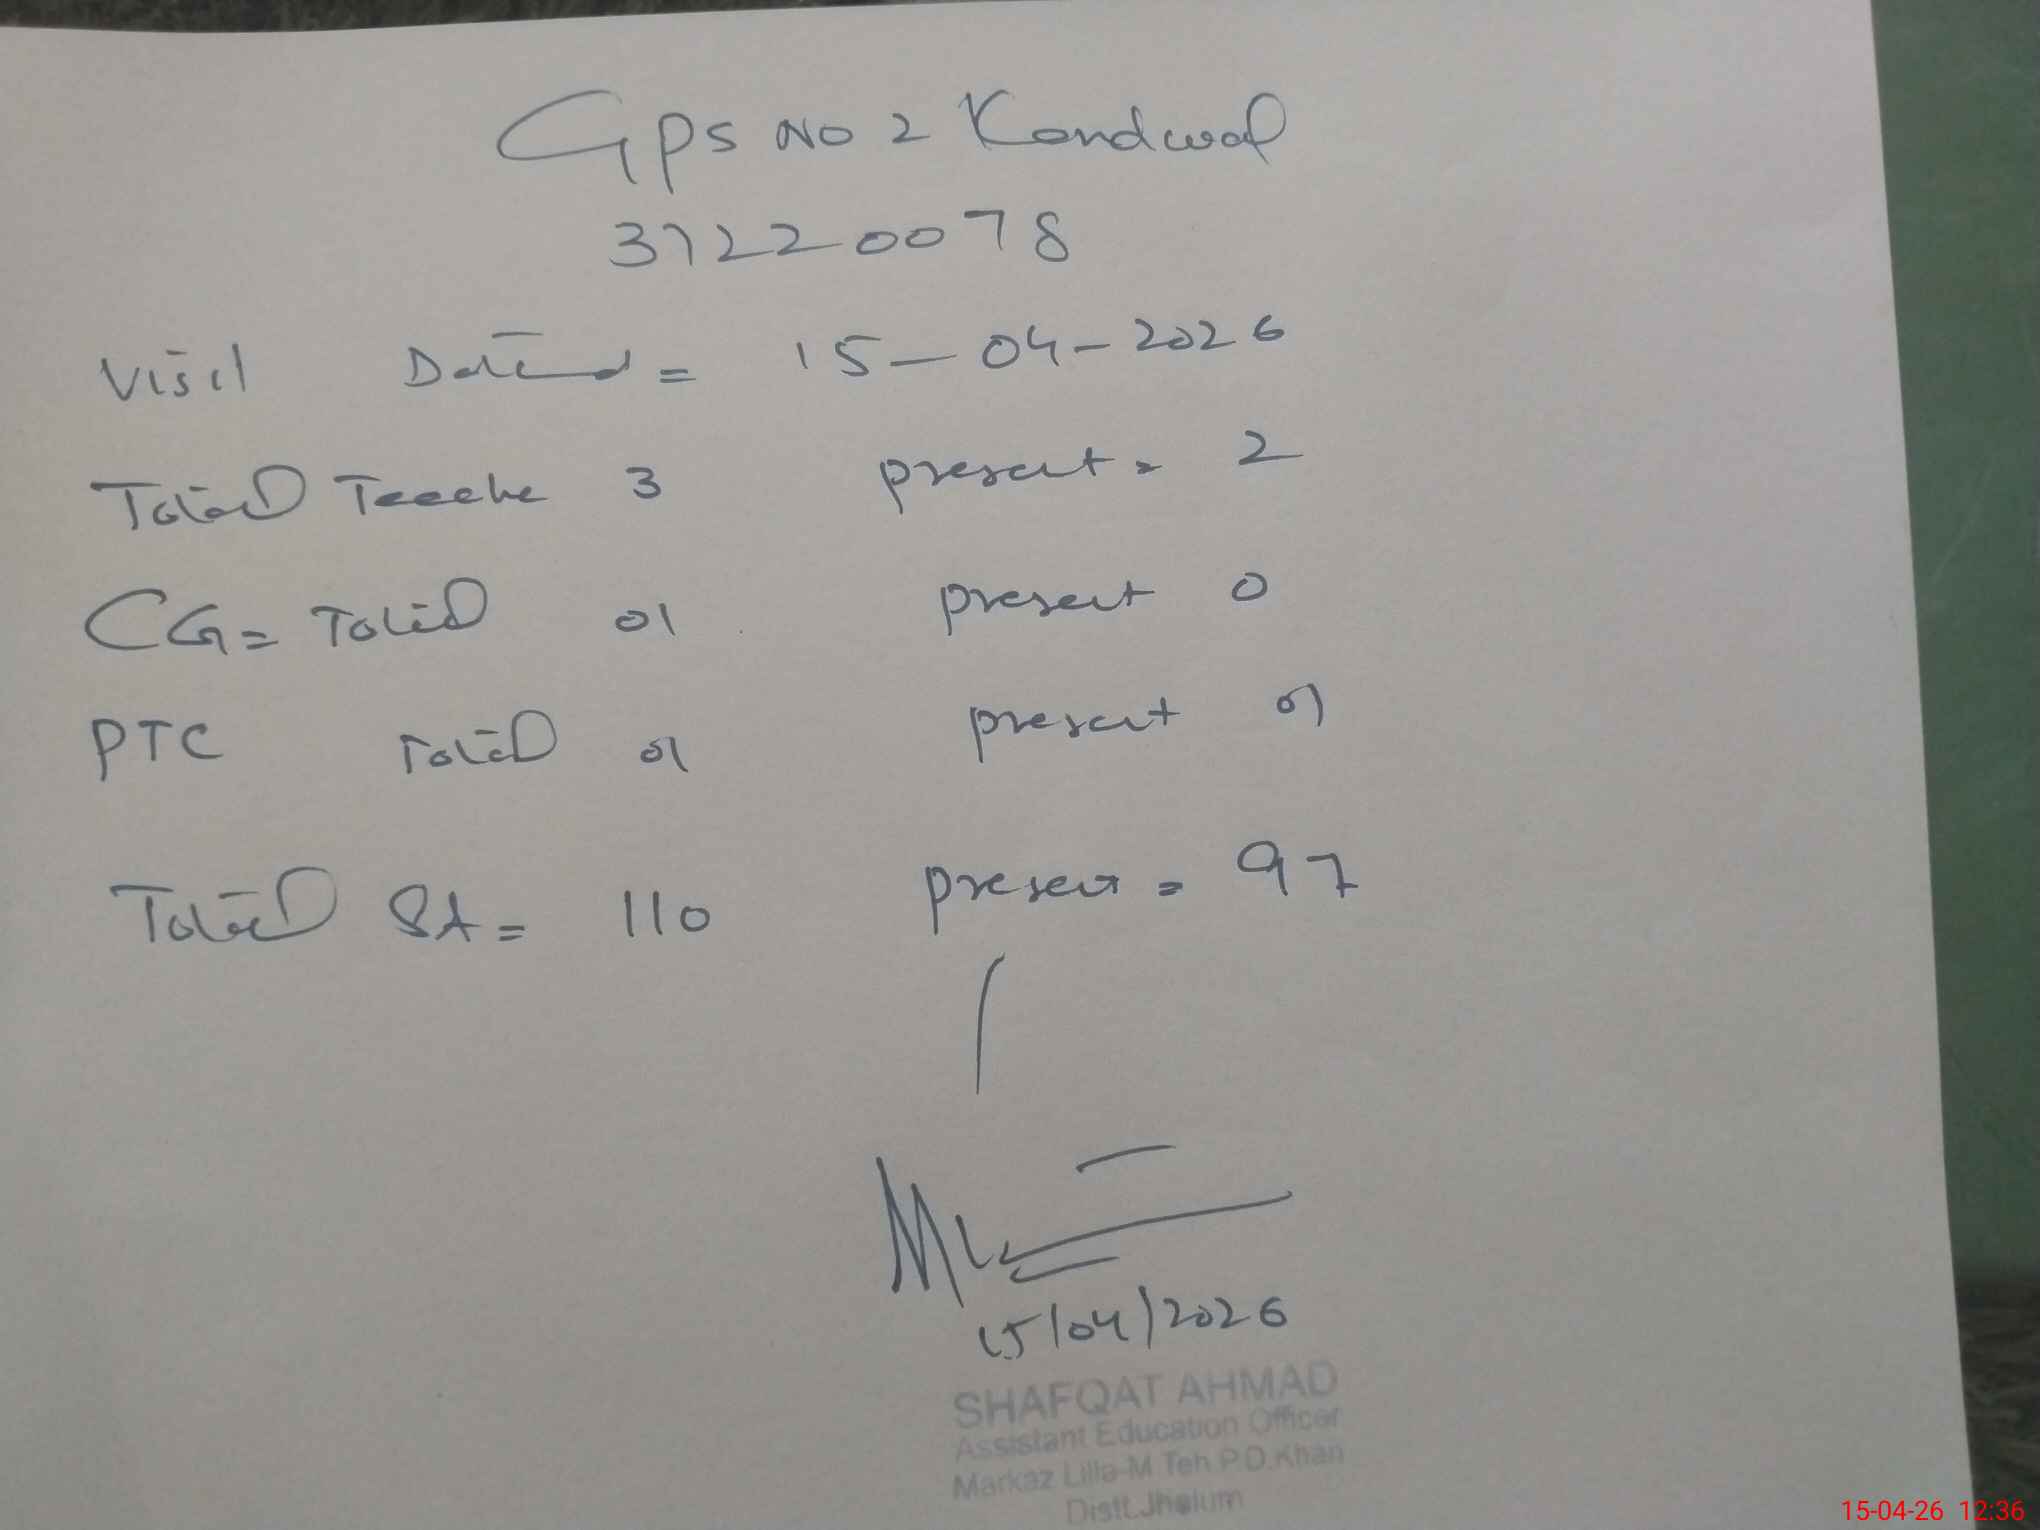 GPS NO 2 Kandwal
37220078
Visit Dated = 15-04-2026
Total Teache 3 present = 2
CG = Total 01 present 0
PTC Total 01 present 01
Total SA = 110 present = 97
15/04/2026
SHAFQAT AHMAD
Assistant Education Officer
Markaz Lilla-M Teh P.D.Khan
Distt.Jhelum
15-04-26 12:36